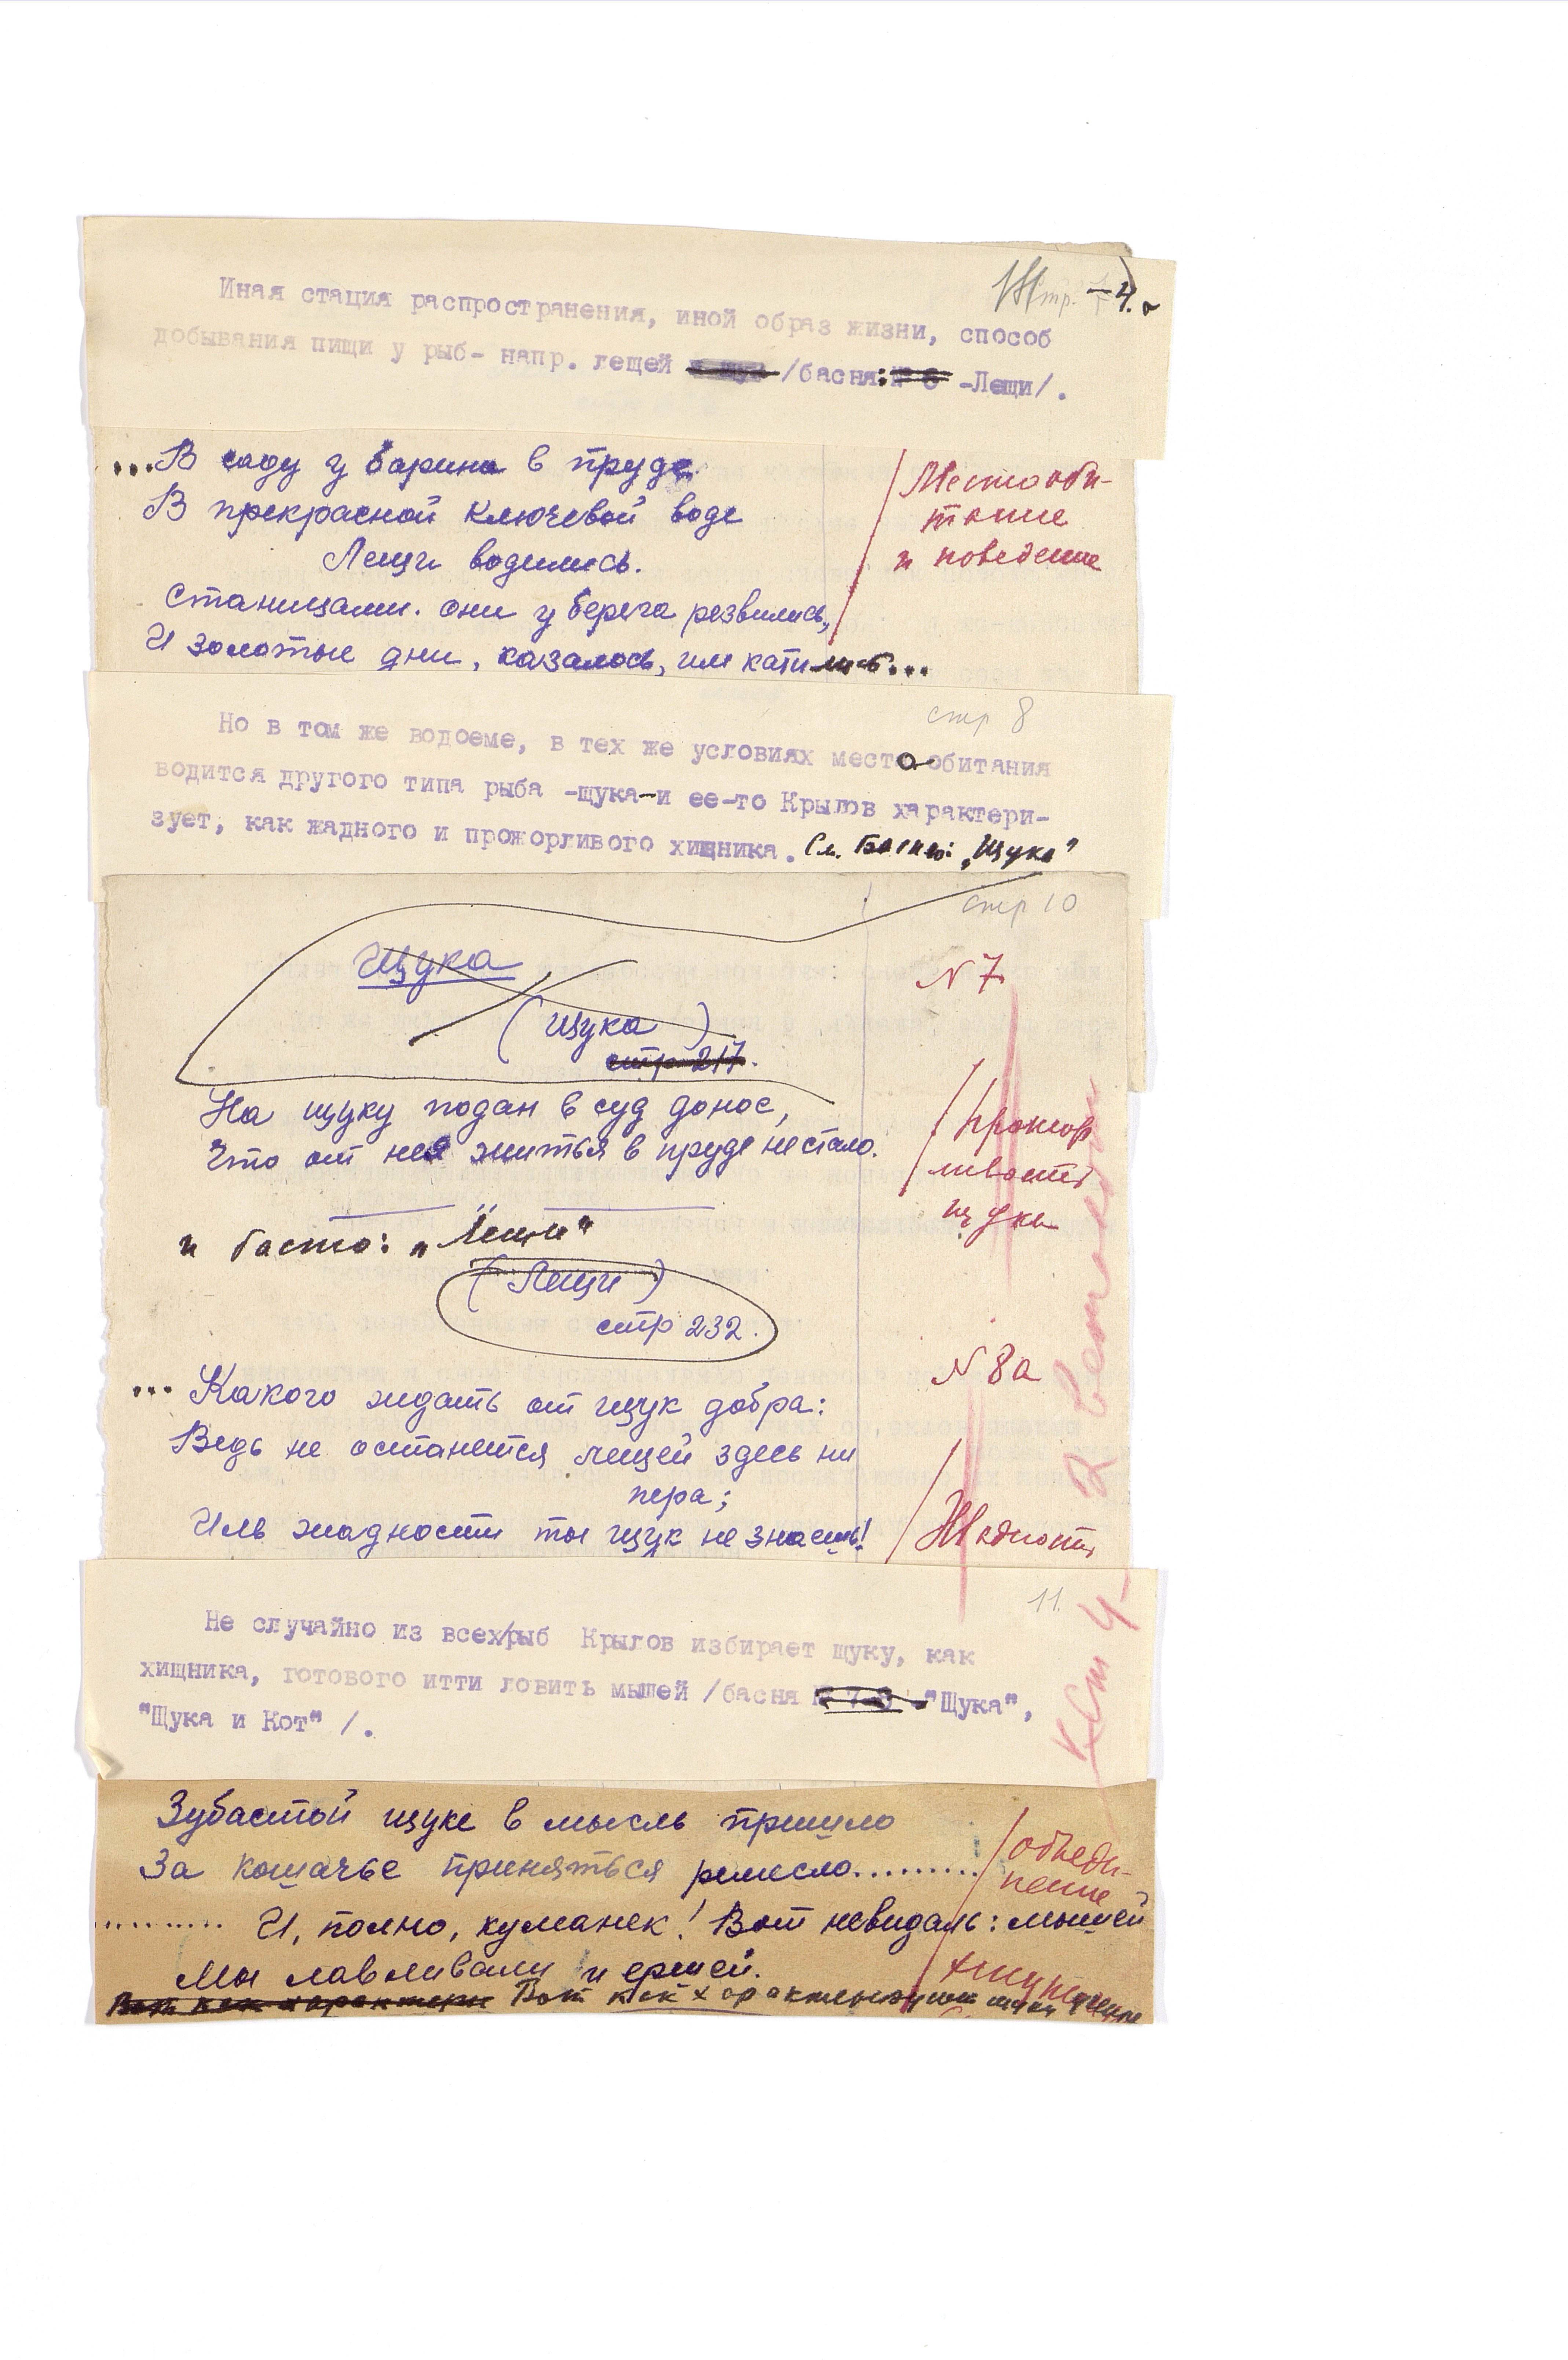 стр. 4.
Иная стация распространения, иной образ жизни, способ
добывания пищи у рыб- напр. лещей /басня: -Лещи/.
...В саду у барина в пруде
В прекрасной ключевой воде
Лещи водились.
Станицами. они у берега резвились,
И золотые дни, казалось, им катились...
Местооби-
тание
и поведение
стр 8
Но в том же водоеме, в тех же условиях местообитания
водится другого типа рыба -щука-и ее-то Крылов характери-
зует, как жадного и прожорливого хищника. См. Басню: „Щука"
стр 10
Щука
(щука)
стр 217.
N 7
На щуку подан в суд донос,
Что от нея житья в пруде не стало.
Прожор
ливость
щуки
и басню: „Лещи"
(Лещи)
стр 232.
N 8а
... Какого ждать от щук добра:
Ведь не останется лещей здесь ни
пера;
Иль жадности ты щук не знаешь!
Жадность
2
К ст 4
11.
Не случайно из всех рыб Крылов избирает щуку, как
хищника, готового итти ловить мышей /басня "Щука",
"Щука и Кот" /.
Зубастой щуке в мысль пришло
За кошачье приняться ремесло.........
.......... И, полно, куманек! Вот невидаль: мышей
Мы лавливали и ершей.
объеди-
нение
Вот как характери Вот как